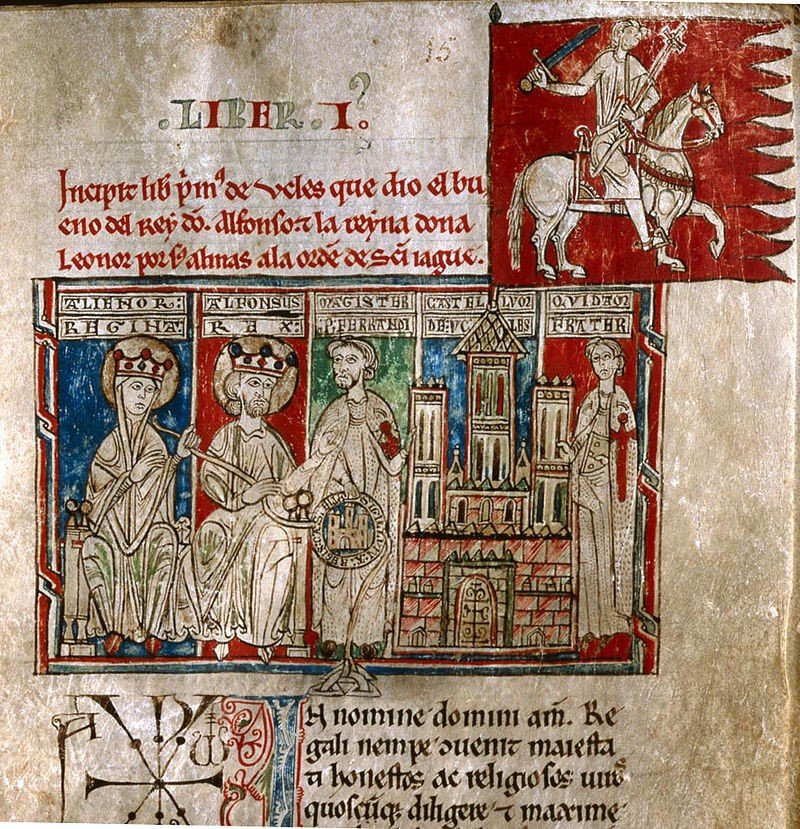 15
.LIBER.I.
Incipit lib p̃mꝰ de Vcles que dio el bu
eno del Rey dõ. Alfonso ⁊ la reyna dona
Leonor por sꝰ almas a la ordẽ de Sc̃i iague.
ALIENOR: REGINA:
ALFONSUS REX:
MAGISTER P. FERRANDI
CASTELLVM DE VCLES
QVIDAM FRATER
A ω
IN nomine domini am̃. Re
gali nempe ↄuenit maiesta
ti honestos ac religiosos uiros
quoscũq; diligere ⁊ maxime